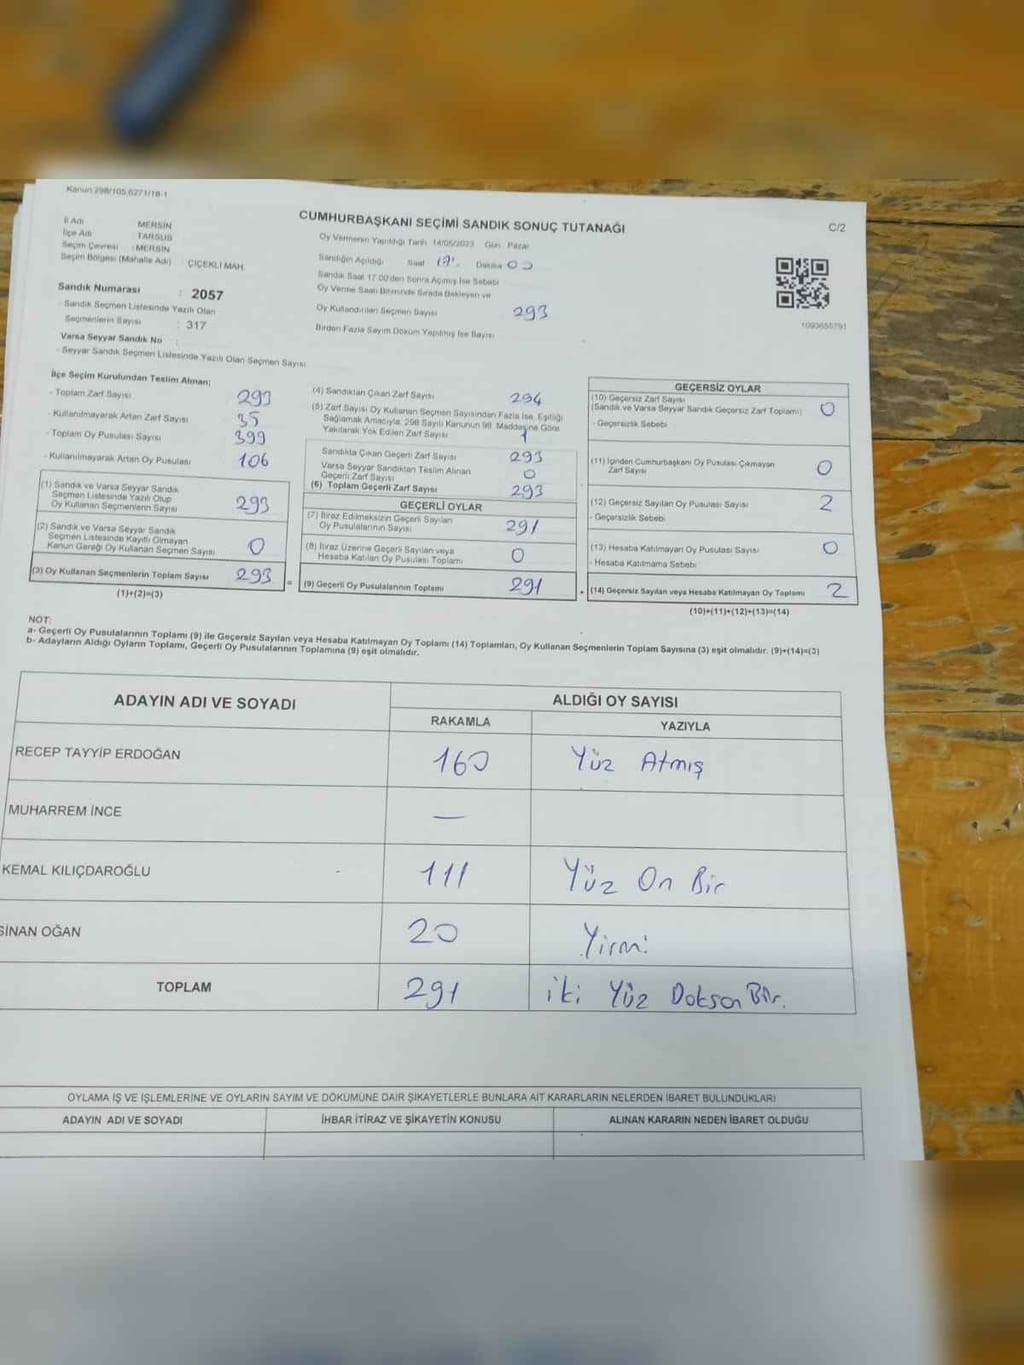 Kanun 298/105,6271/18-1
CUMHURBAŞKANI SEÇİMİ SANDIK SONUÇ TUTANAĞI
C/2
İl Adı MERSİN
İlçe Adı TARSUS
Seçim Çevresi : MERSİN
Seçim Bölgesi (Mahalle Adı) ÇİÇEKLİ MAH.
Sandık Numarası : 2057
- Sandık Seçmen Listesinde Yazılı Olan
Seçmenlerin Sayısı : 317
Varsa Seyyar Sandık No :
- Seyyar Sandık Seçmen Listesinde Yazılı Olan Seçmen Sayısı
Oy Vermenin Yapıldığı Tarih 14/05/2023 Gün Pazar
Sandığın Açıldığı Saat 17. Dakika 00
Sandık Saat 17.00'den Sonra Açılmış İse Sebebi
Oy Verme Saati Bitiminde Sırada Bekleyen ve
Oy Kullandırılan Seçmen Sayısı 293
Birden Fazla Sayım Döküm Yapılmış İse Sayısı
1093655791
İlçe Seçim Kurulundan Teslim Alınan;
- Toplam Zarf Sayısı 293
- Kullanılmayarak Artan Zarf Sayısı 35
- Toplam Oy Pusulası Sayısı 399
- Kullanılmayarak Artan Oy Pusulası 106
(1) Sandık ve Varsa Seyyar Sandık
Seçmen Listesinde Yazılı Olup
Oy Kullanan Seçmenlerin Sayısı 293
(2) Sandık ve Varsa Seyyar Sandık
Seçmen Listesinde Kayıtlı Olmayan
Kanun Gereği Oy Kullanan Seçmen Sayısı 0
(3) Oy Kullanan Seçmenlerin Toplam Sayısı 293
(1)+(2)=(3)
(4) Sandıktan Çıkan Zarf Sayısı 294
(5) Zarf Sayısı Oy Kullanan Seçmen Sayısından Fazla İse, Eşitliği
Sağlamak Amacıyla; 298 Sayılı Kanunun 98. Maddesine Göre
Yakılarak Yok Edilen Zarf Sayısı 1
Sandıkta Çıkan Geçerli Zarf Sayısı 293
Varsa Seyyar Sandıktan Teslim Alınan
Geçerli Zarf Sayısı 0
(6) Toplam Geçerli Zarf Sayısı 293
GEÇERLİ OYLAR
(7) İtiraz Edilmeksizin Geçerli Sayılan
Oy Pusulalarının Sayısı 291
(8) İtiraz Üzerine Geçerli Sayılan veya
Hesaba Katılan Oy Pusulası Toplamı 0
(9) Geçerli Oy Pusulalarının Toplamı 291
GEÇERSİZ OYLAR
(10) Geçersiz Zarf Sayısı
(Sandık ve Varsa Seyyar Sandık Geçersiz Zarf Toplamı) 0
- Geçersizlik Sebebi
(11) İçinden Cumhurbaşkanı Oy Pusulası Çıkmayan
Zarf Sayısı 0
(12) Geçersiz Sayılan Oy Pusulası Sayısı 2
- Geçersizlik Sebebi
(13) Hesaba Katılmayan Oy Pusulası Sayısı 0
- Hesaba Katılmama Sebebi
(14) Geçersiz Sayılan veya Hesaba Katılmayan Oy Toplamı 2
(10)+(11)+(12)+(13)=(14)
NOT:
a- Geçerli Oy Pusulalarının Toplamı (9) ile Geçersiz Sayılan veya Hesaba Katılmayan Oy Toplamı (14) Toplamları, Oy Kullanan Seçmenlerin Toplam Sayısına (3) eşit olmalıdır. (9)+(14)=(3)
b- Adayların Aldığı Oyların Toplamı, Geçerli Oy Pusulalarının Toplamına (9) eşit olmalıdır.
ADAYIN ADI VE SOYADI ALDIĞI OY SAYISI
RAKAMLA YAZIYLA
RECEP TAYYİP ERDOĞAN 160 Yüz Atmış
MUHARREM İNCE —
KEMAL KILIÇDAROĞLU 111 Yüz On Bir
SİNAN OĞAN 20 Yirmi
TOPLAM 291 iki Yüz Doksan Bir.
OYLAMA İŞ VE İŞLEMLERİNE VE OYLARIN SAYIM VE DÖKÜMÜNE DAİR ŞİKAYETLERLE BUNLARA AİT KARARLARIN NELERDEN İBARET BULUNDUKLARI
ADAYIN ADI VE SOYADI İHBAR İTİRAZ VE ŞİKAYETİN KONUSU ALINAN KARARIN NEDEN İBARET OLDUĞU